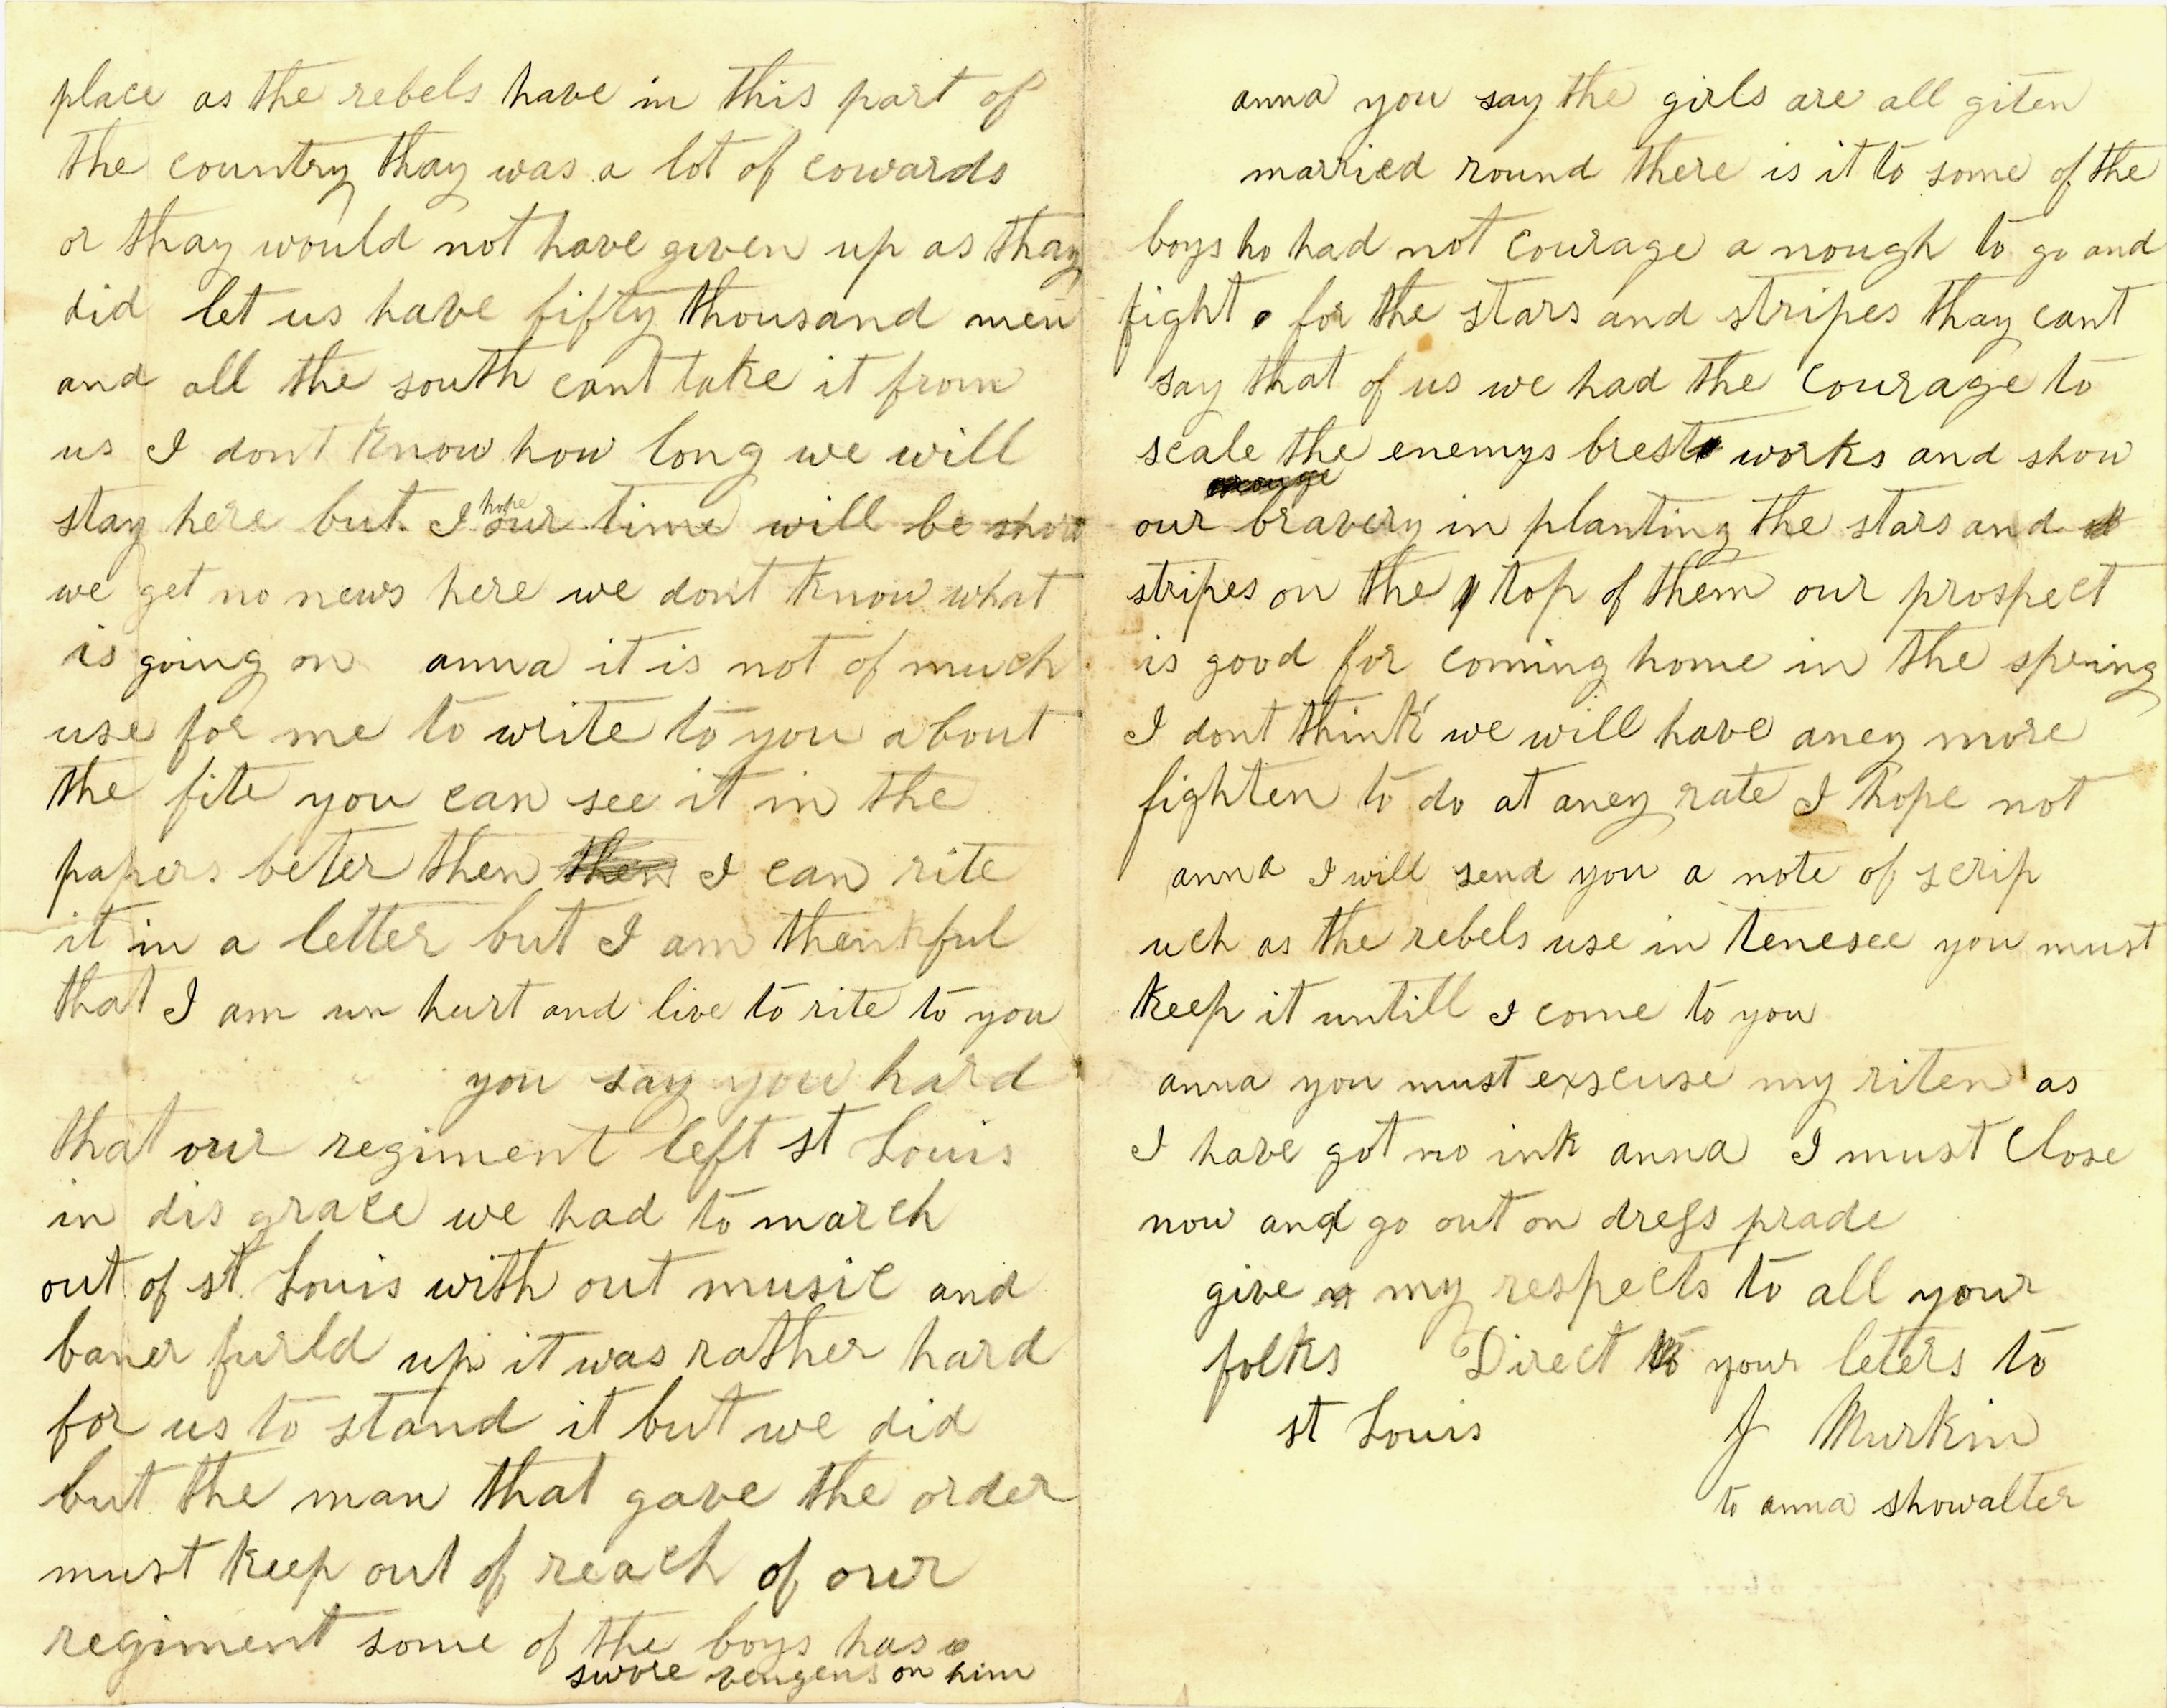 place as the rebels have in this part of
the country thay was a lot of cowards
or thay would not have given up as thay
did let us have fifty thousand men
and all the south cant take it from
us I dont know how long we will
stay here but I hope our time will be short
we get no news here we dont know what
is going on anna it is not of much
use for me to write to you about
the fite you can see it in the
papers beter then then I can rite
it in a letter but I am thenkful
that I am un hurt and live to rite to you
you say you hard
that our regiment left st Louis
in dis grace we had to march
out of st Louis with out music and
baner furld up it was rather hard
for us to stand it but we did
but the man that gave the order
must keep out of reach of our
regiment some of the boys has
swore vengens on him
anna you say the girls are all giten
married round there is it to some of the
boys ho had not courage a nough to go and
fight for the stars and stripes thay cant
say that of us we had the courage to
scale the enemys brest works and show
our bravery in planting the stars and
stripes on the top of them our prospect
is good for coming home in the spring
I dont think we will have aney more
fighten to do at aney rate I hope not
anna I will send you a note of scrip
uch as the rebels use in tenesee you must
keep it untill I come to you
anna you must exscuse my riten as
I have got no ink anna I must close
now and go out on dress prade
give my respects to all your
folks Direct your leters to
st Louis J Murkin
to anna showalter